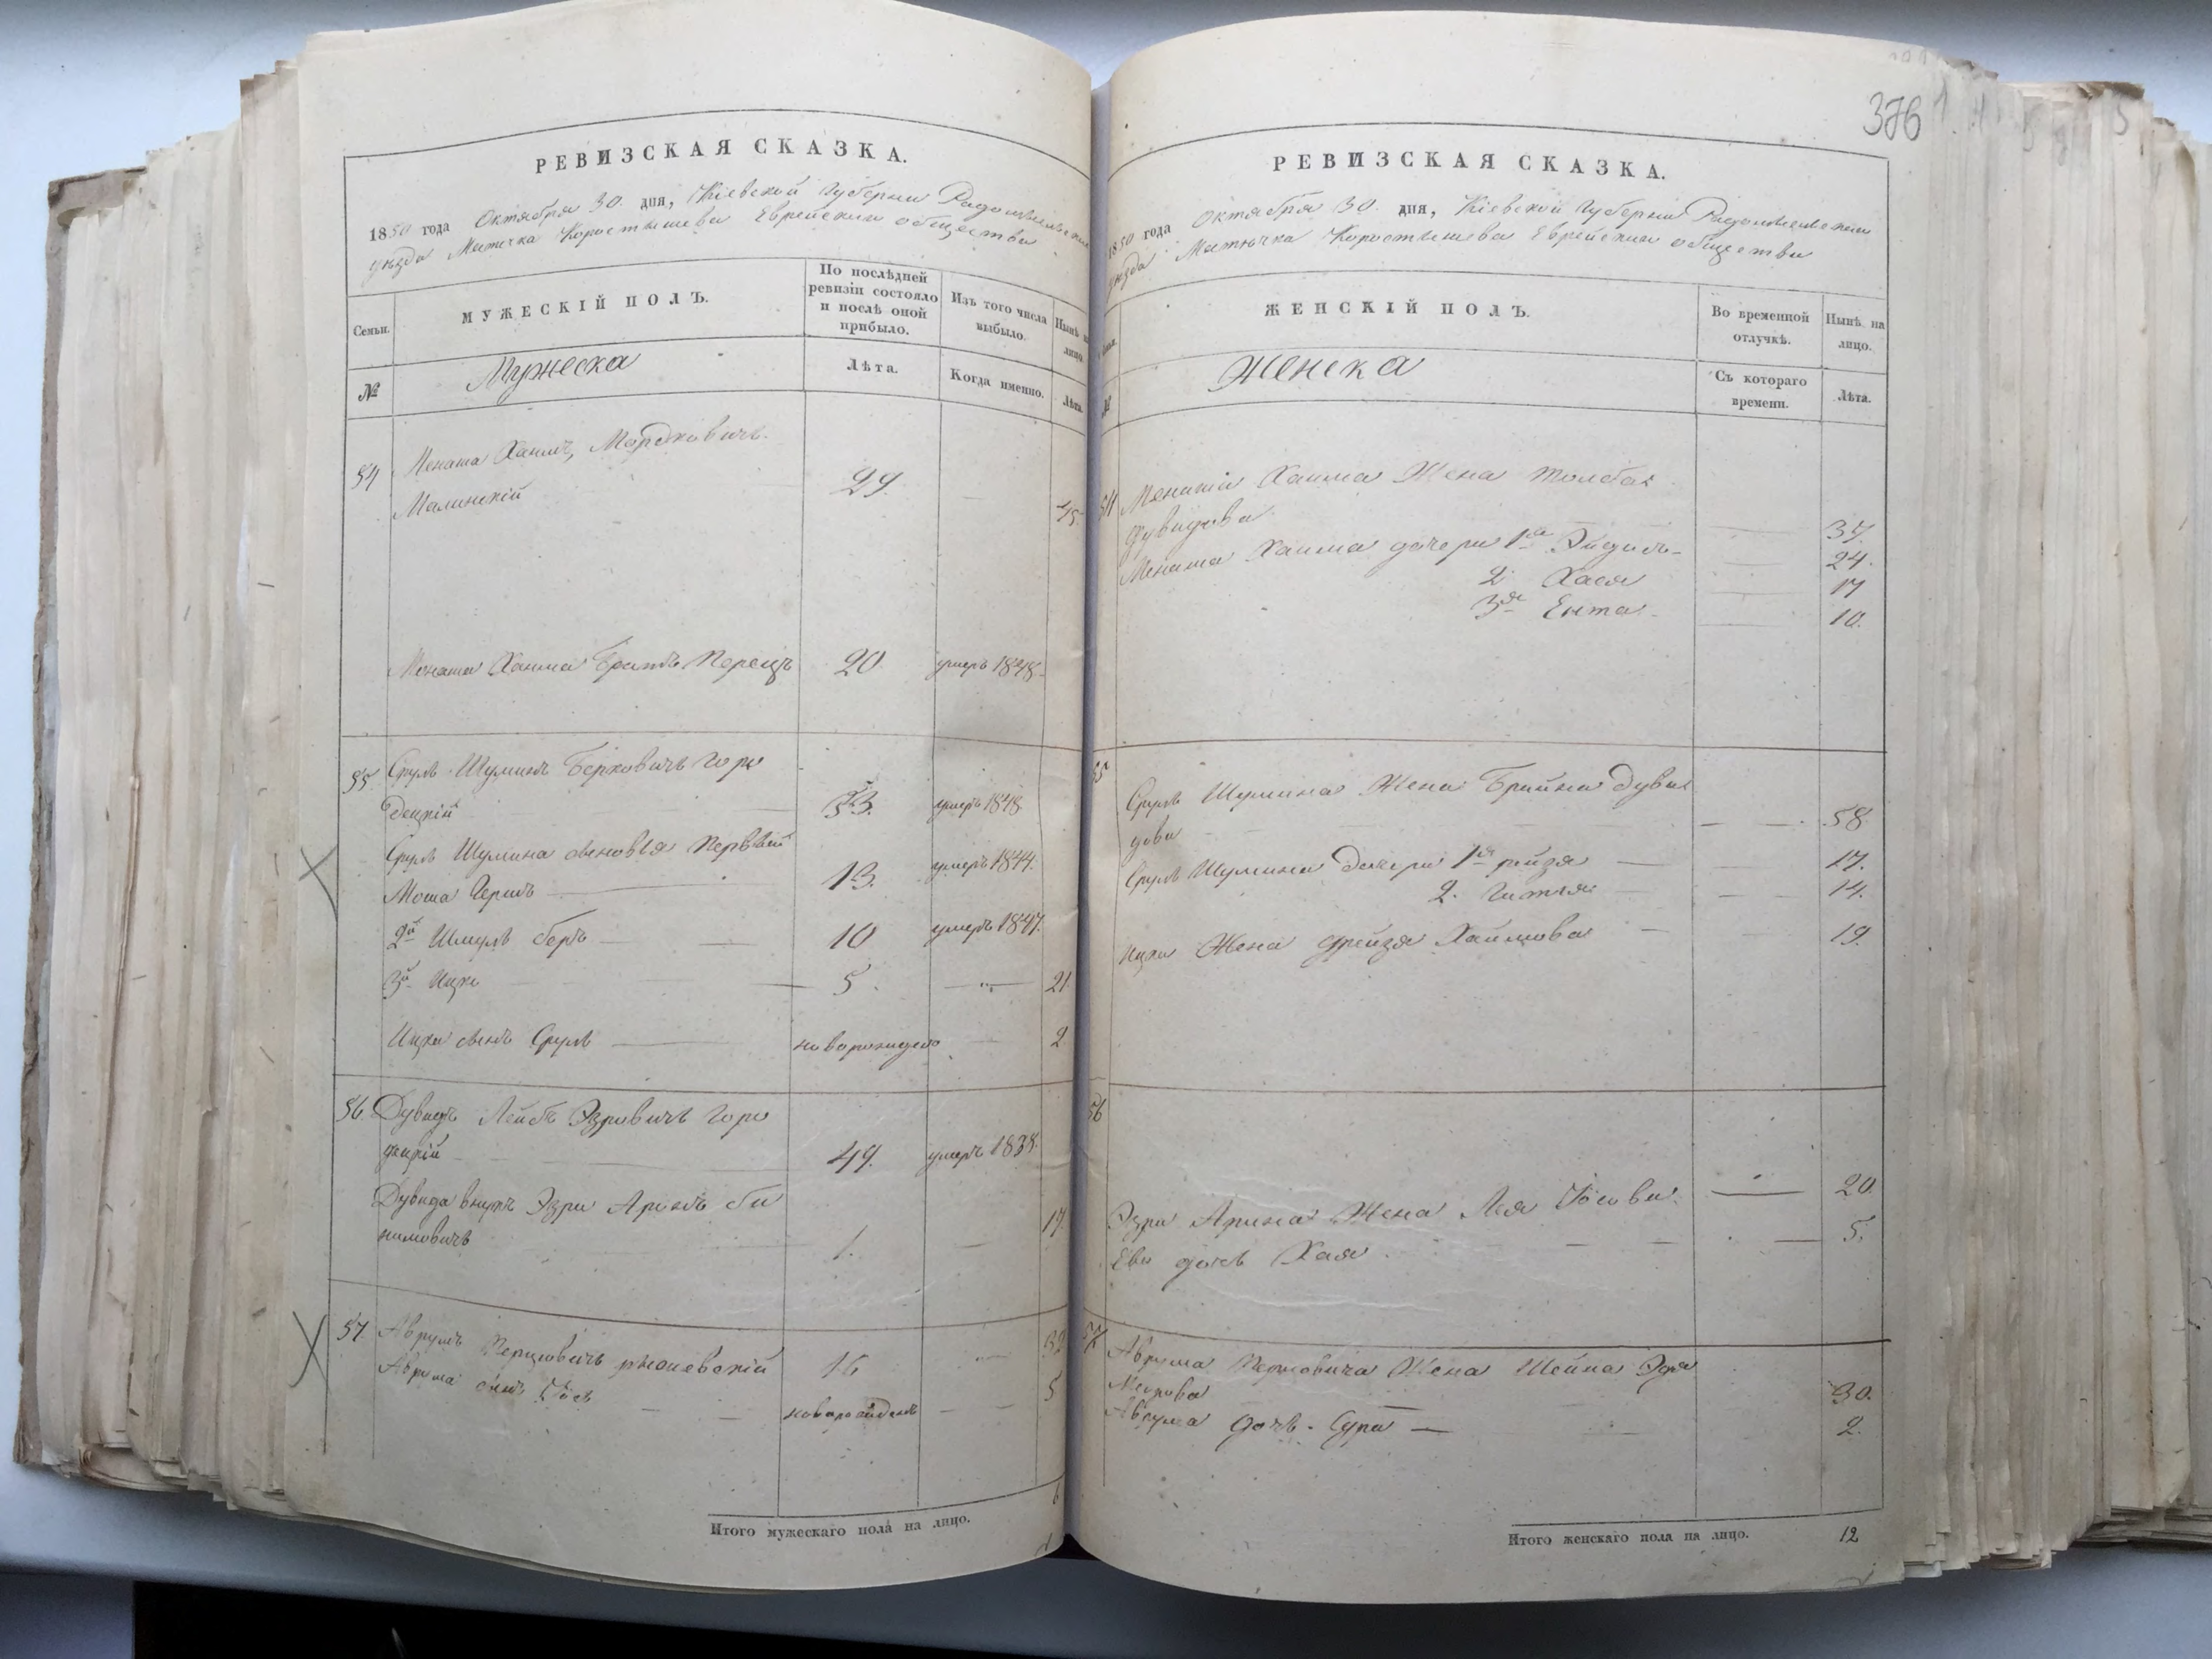 376
РЕВИЗСКАЯ СКАЗКА.
1850 года Октября 30. дня, Кіевской Губерніи Радомысльскаго
уезда Мѣстечка Коростышева Еврейскаго общества
Семьи.
МУЖЕСКІЙ ПОЛЪ.
По послѣдней ревизіи состояло и послѣ оной прибыло.
Изъ того числа выбыло.
Нынѣ на лицо.
№
Мужеска
Лѣта.
Когда именно.
Лѣта.
54 Менаша Хаимъ, Мордковичъ
Малинскій 29. — 45
Менаша Хаима братъ Перецъ 20 умеръ 1848
55 Сруль Шулимъ Берковичъ Горо
децкій 53. умеръ 1848
Сруль Шулима сыновья Первый
Моша Гершъ — 13. умеръ 1844.
2й Шмуль беръ — 10 умеръ 1847.
3й Ицко — 5. — 21.
Ицка сынъ Сруль — новорожденъ — 2
56 Дувидъ Лейбъ Эзровичъ Горо
децкій 49. умеръ 1838.
Дувида внукъ Эзра Аронъ
1. — 17.
57 Аврумъ Перцовичъ 16 — 32
Аврума сынъ Іось — новорожденъ — 5
6
Итого мужескаго пола на лицо.
РЕВИЗСКАЯ СКАЗКА.
1850 года Октября 30. дня, Кіевской Губерніи Радомысльскаго
уезда Мѣстечка Коростышева Еврейскаго общества
ЖЕНСКІЙ ПОЛЪ.
Во временной отлучкѣ.
Нынѣ на лицо.
№
Женска
Съ котораго времени.
Лѣта.
54 Менаша Хаима Жена
Дувидова — 37.
Менаша Хаима дочери 1я — 24.
2. Хася — 17
3я Ента — 10.
55 Сруль Шулима Жена Брайна Дуви
дова — 58
Сруль Шулима дочери 1я рейзя — 17.
2. Гитля — 14.
Ицка Жена Фрейдя Хаимова — 19.
56
Эзра Арона Жена Лея Іосьова — 20.
Его дочь Хая — 5.
57 Аврума Перцовича Жена Шейна
30.
Аврума дочь Сура — 2.
Итого женскаго пола на лицо. 12